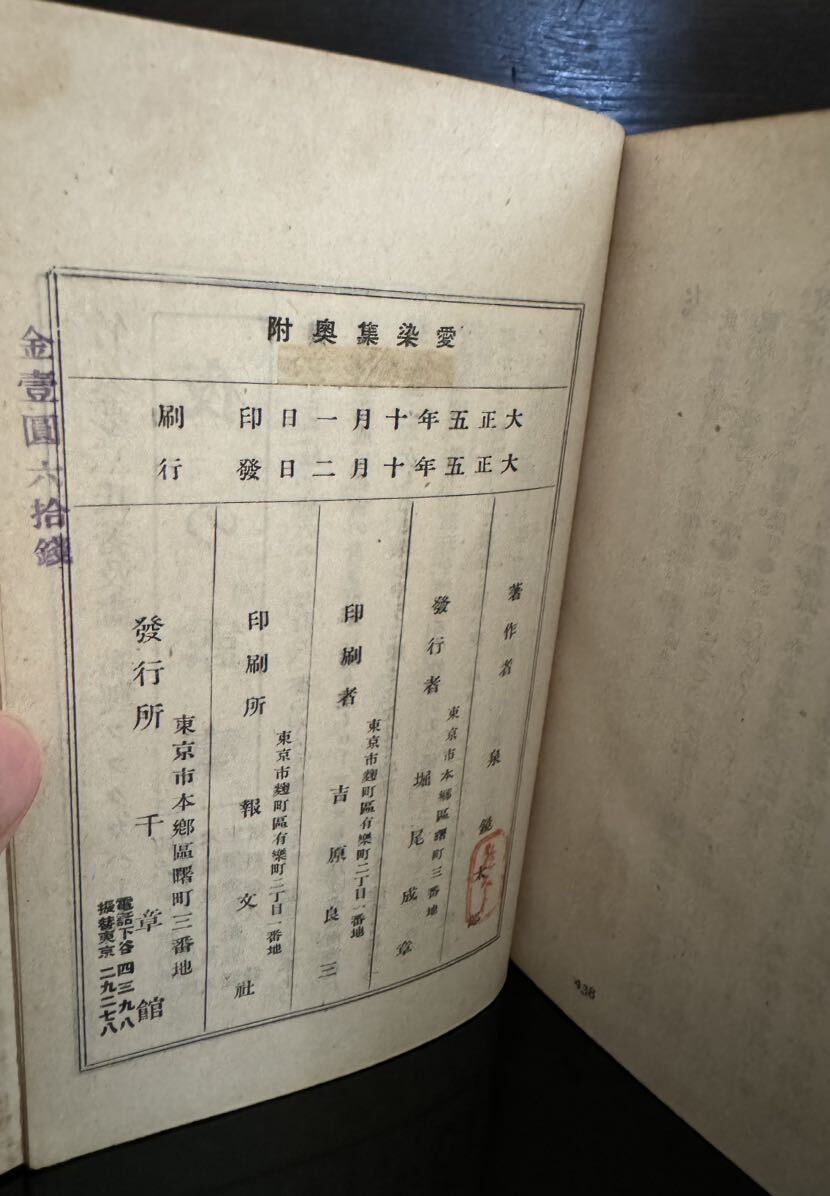 愛染集奥附
大正五年十月一日印刷
大正五年十月二日發行
著作者 泉鏡太郎
發行者 東京市本鄕區曙町三番地 堀尾成章
印刷者 東京市麹町區有樂町二丁目一番地 吉原良三
印刷所 東京市麹町區有樂町二丁目一番地 報文社
發行所 東京市本鄕區曙町三番地 千章館
電話下谷四三九八
振替東京二九二七八
金壹圓六拾錢
438